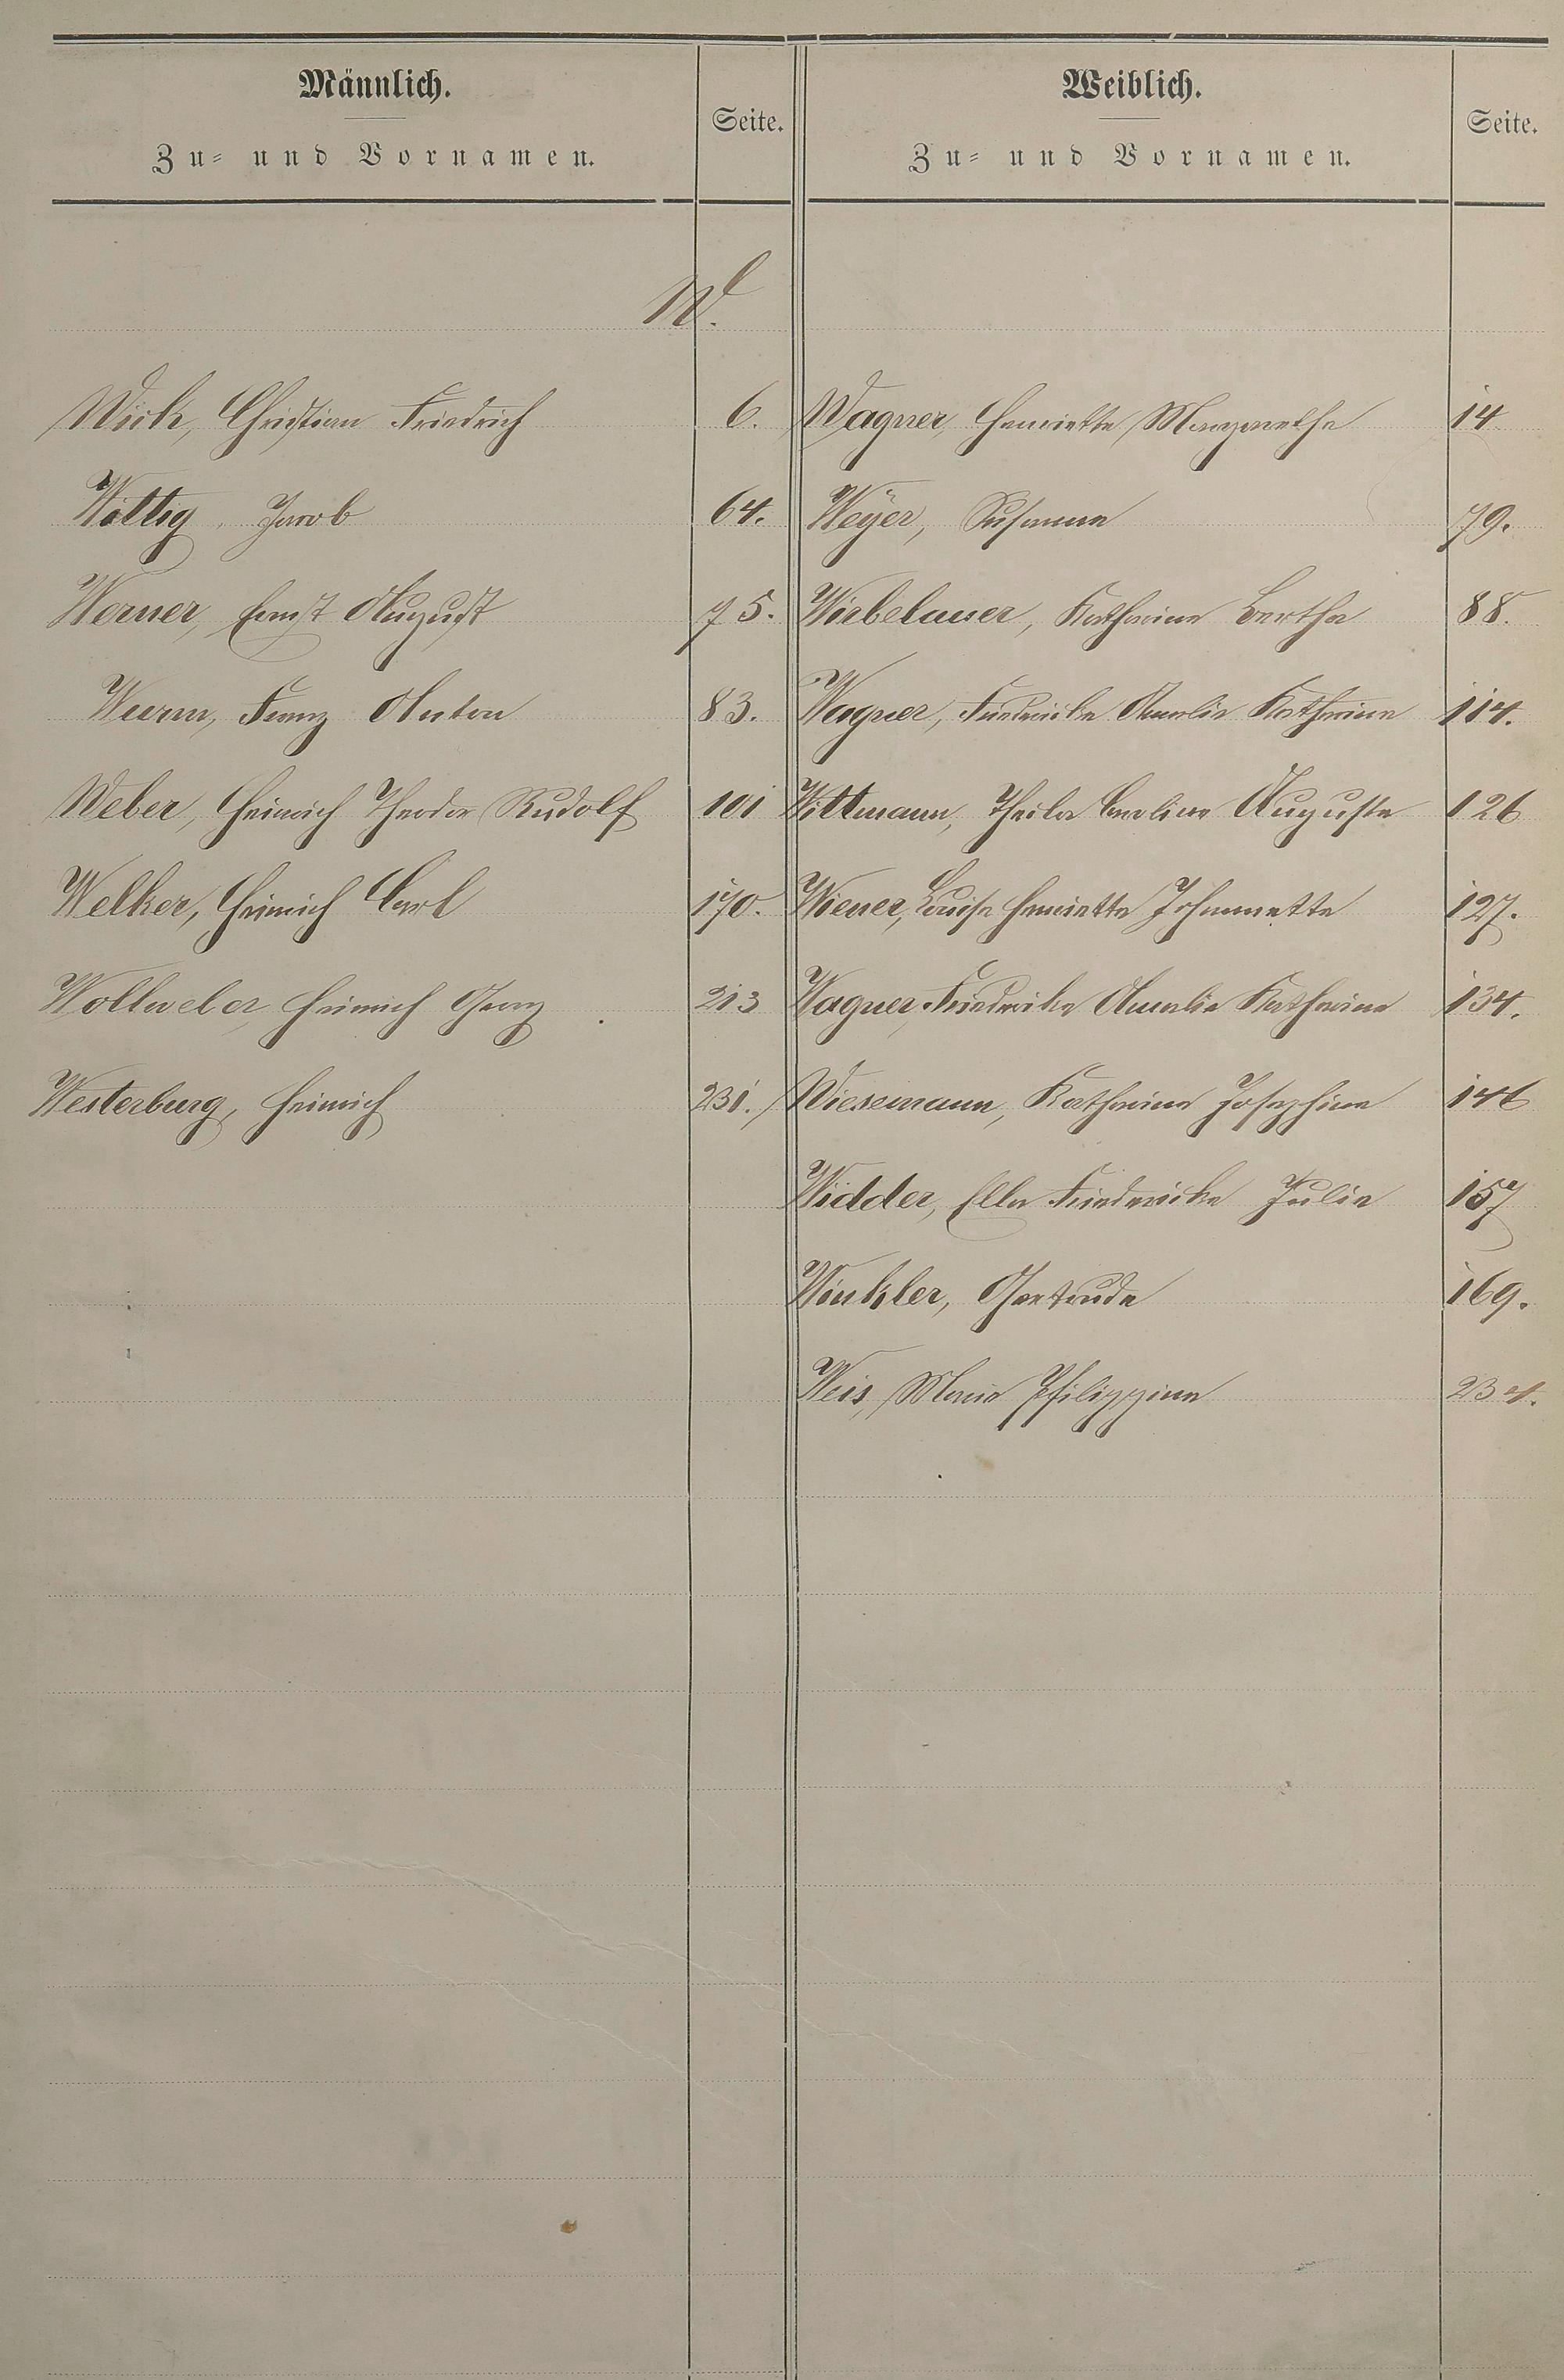 Männlich.
Zu- und Vornamen.
Seite.
Weiblich.
Zu- und Vornamen.
Seite.
W.
Wirk, Christian Friedrich 6.
Wagner, Henriette Margarethe 14
Wittig, Jacob 64.
Weÿer, Susanne 79.
Werner, Ernst August 75.
Wirbelauer, Katharine Bertha 88.
Wurm, Franz Anton 83.
Wagner, Friedricke Amalie Katharine 114.
Weber, Heinrich Theodor Rudolf 101
Wittmann, Thekla Caroline Auguste 126
Welker, Heinrich Carl 170.
Wiener, Louise Henriette Johannette 127.
Wollweber, Heinrich Georg 213
Wagner, Friedricke Amalie Katharine 134.
Westerburg, Heinrich 231.
Wiesemann, Katharine Josephine 146
Widder, Ella Friedericke Julie 157
Winkler, Gertrude 169.
Weis, Maria Philippine 234.